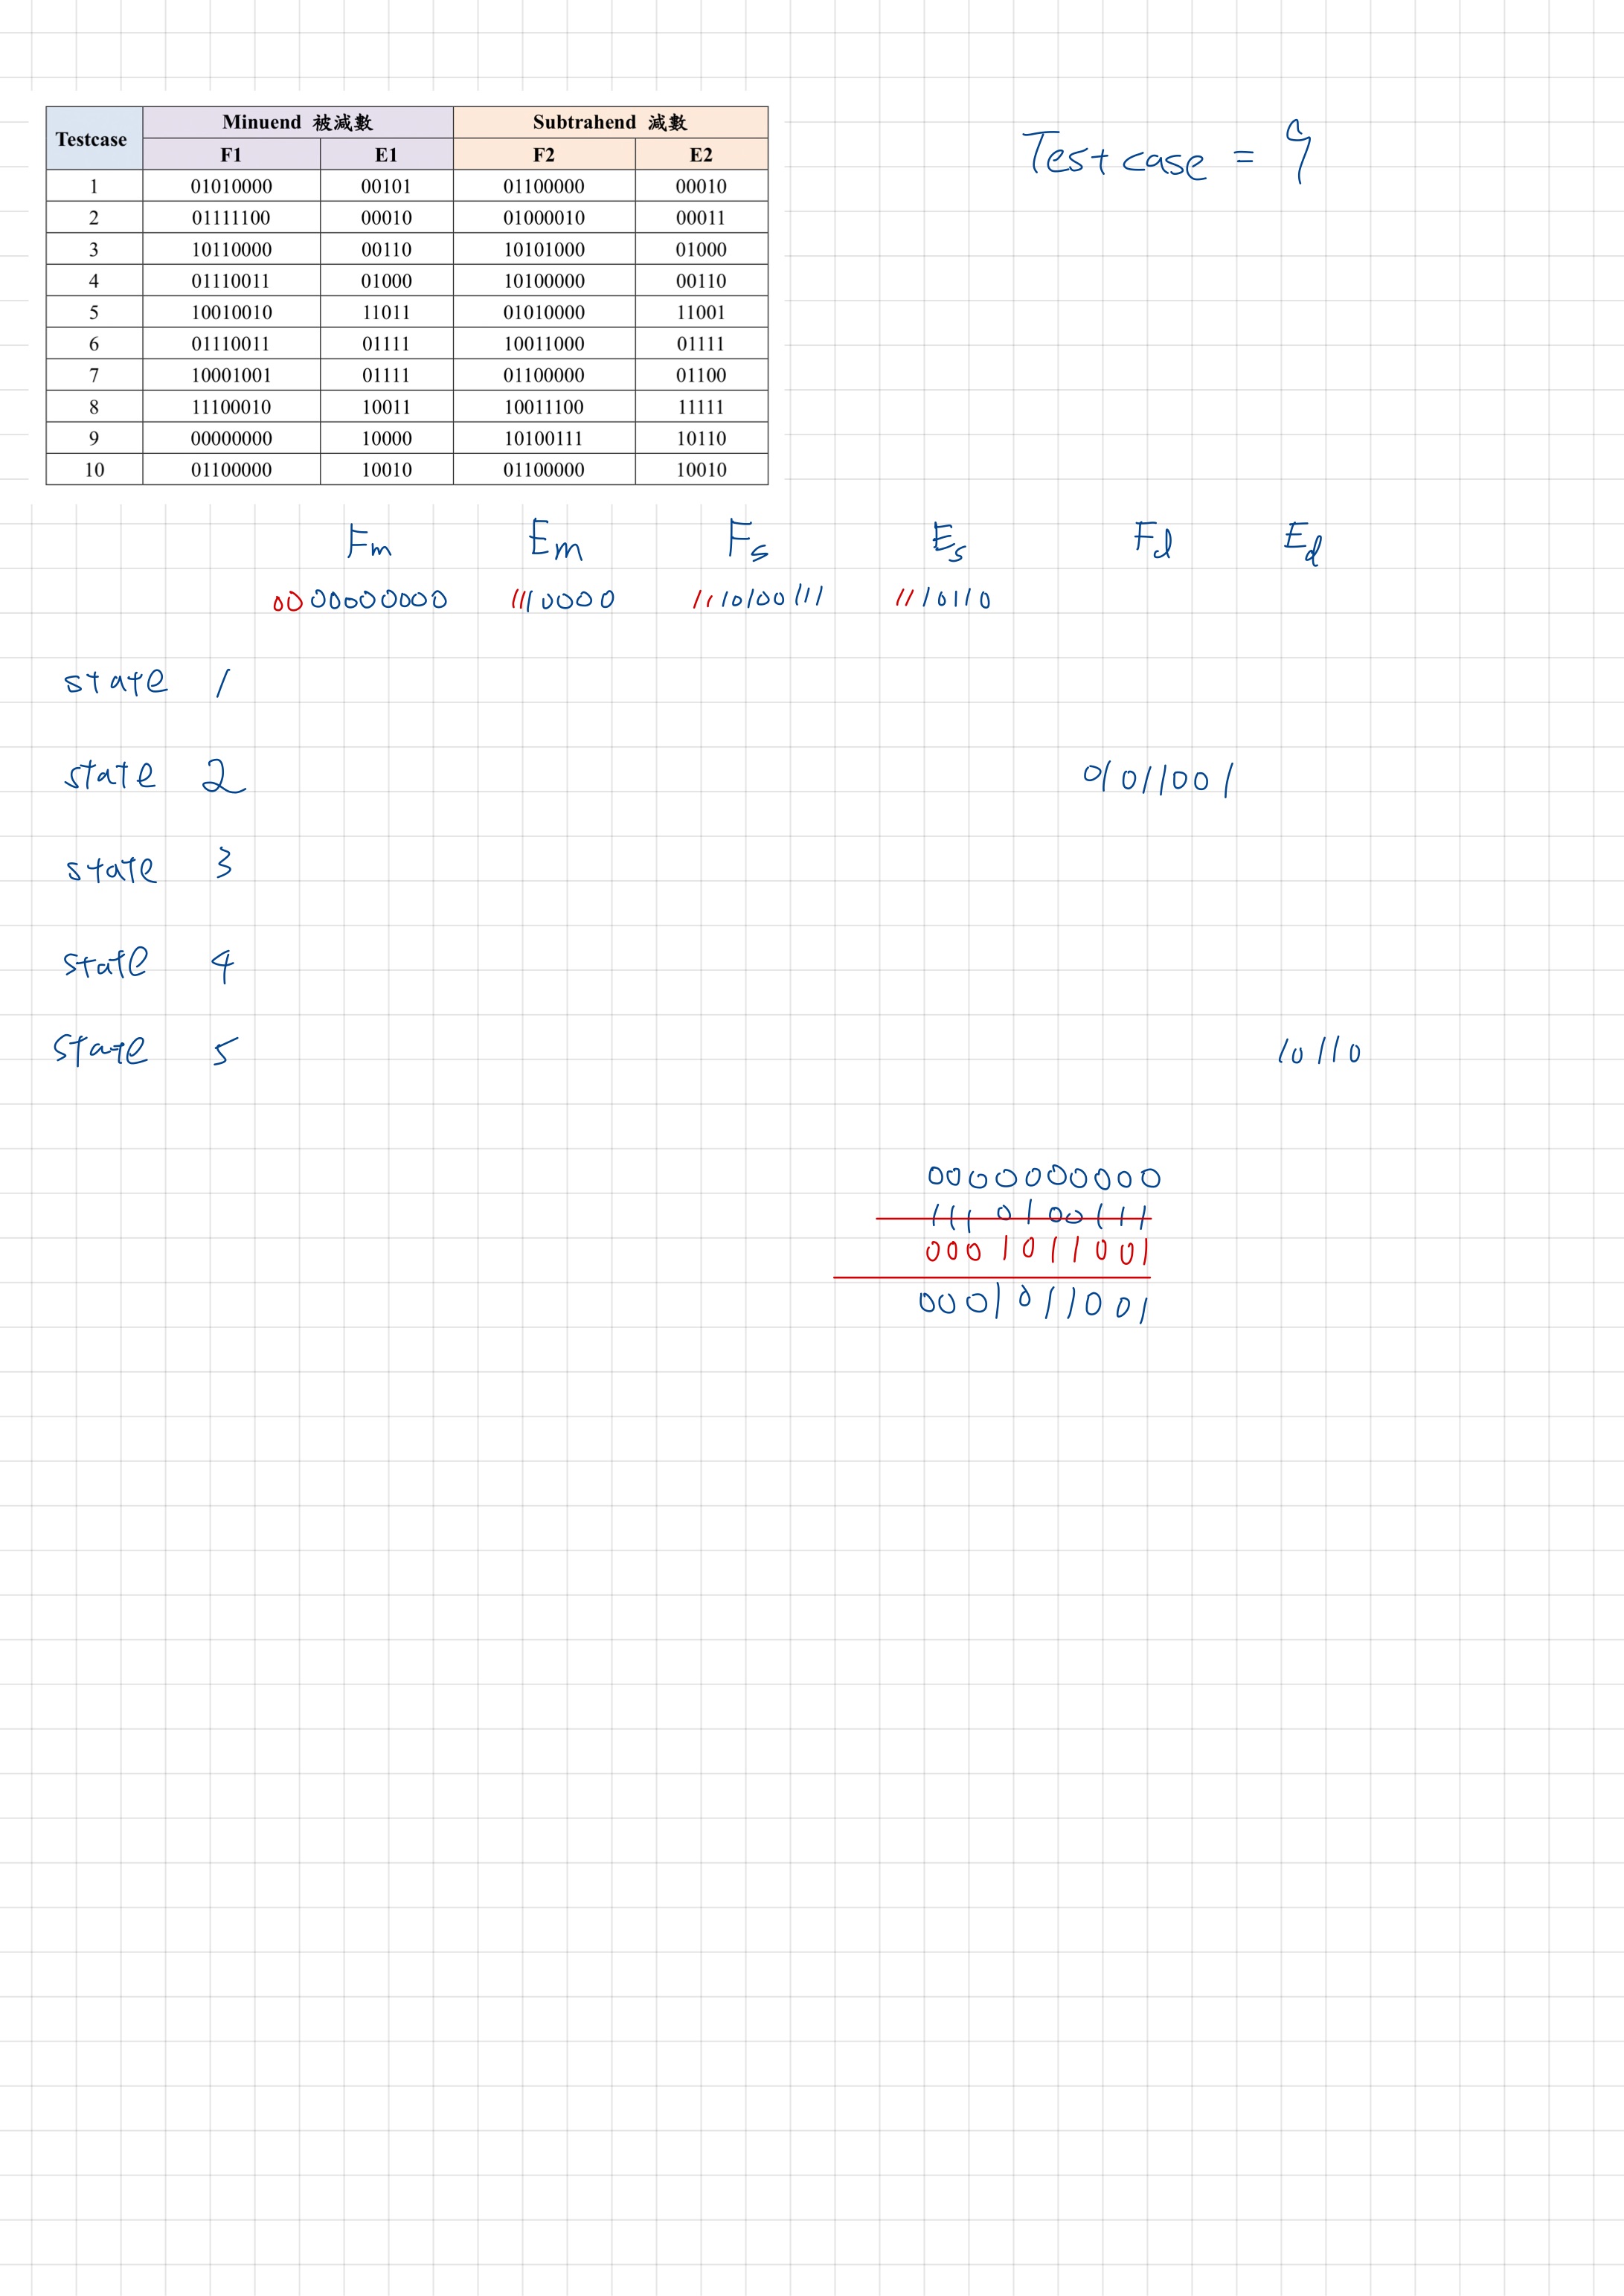 Testcase = 9
Testcase Minuend 被減數 Subtrahend 減數
F1 E1 F2 E2
1 01010000 00101 01100000 00010
2 01111100 00010 01000010 00011
3 10110000 00110 10101000 01000
4 01110011 01000 10100000 00110
5 10010010 11011 01010000 11001
6 01110011 01111 10011000 01111
7 10001001 01111 01100000 01100
8 11100010 10011 10011100 11111
9 00000000 10000 10100111 10110
10 01100000 10010 01100000 10010
Fm Em Fs Es Fd Ed
0000000000 1110000 1110100111 1110110
state 1
state 2 01011001
state 3
state 4
state 5 10110
0000000000
1110100111
0001011001
0001011001